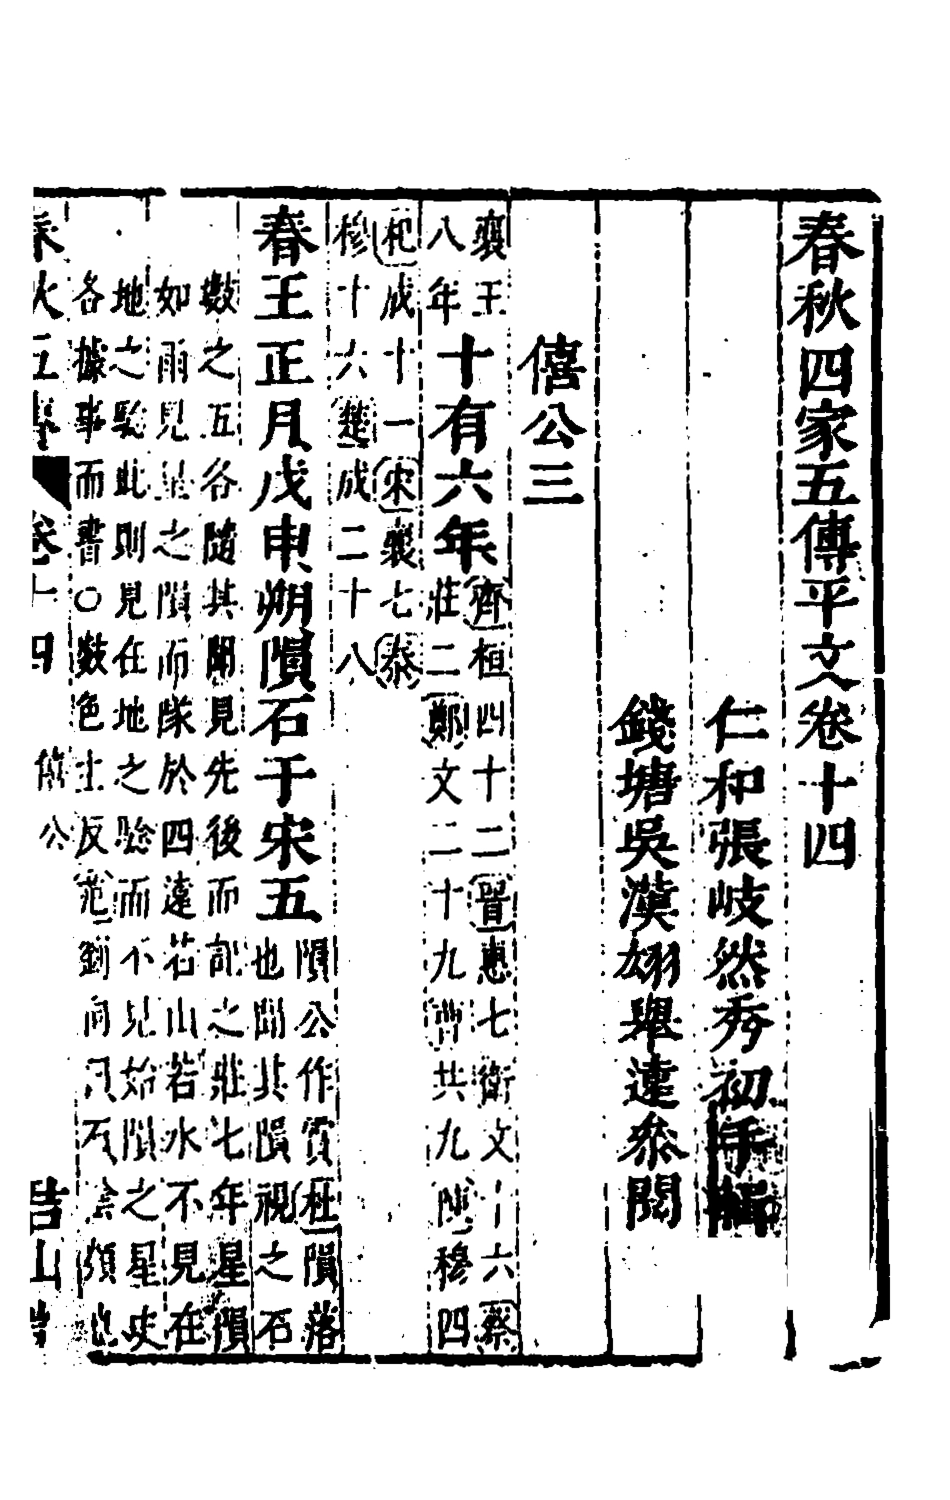 春秋四家五傳平文卷十四
仁和張岐然秀初手輯
錢塘吳漢翊舉遠叅閱
僖公三
襄王
八年
十有六年
齊桓四十二晉惠七衛文十六蔡
莊二鄭文二十九曹共九陳穆四
杞成十一宋襄七秦
穆十六楚成二十八
春王正月戊申朔隕石于宋五
隕公作霣杜隕落
也聞其隕視之石
數之五各隨其聞見先後而記之莊七年星隕
如雨見星之隕而隊於四遠若山若水不見在
地之驗此則見在地之驗而不見始隕之星史
各據事而書○數色主反范劉向曰石陰類也
春秋五傳
卷十四
僖公